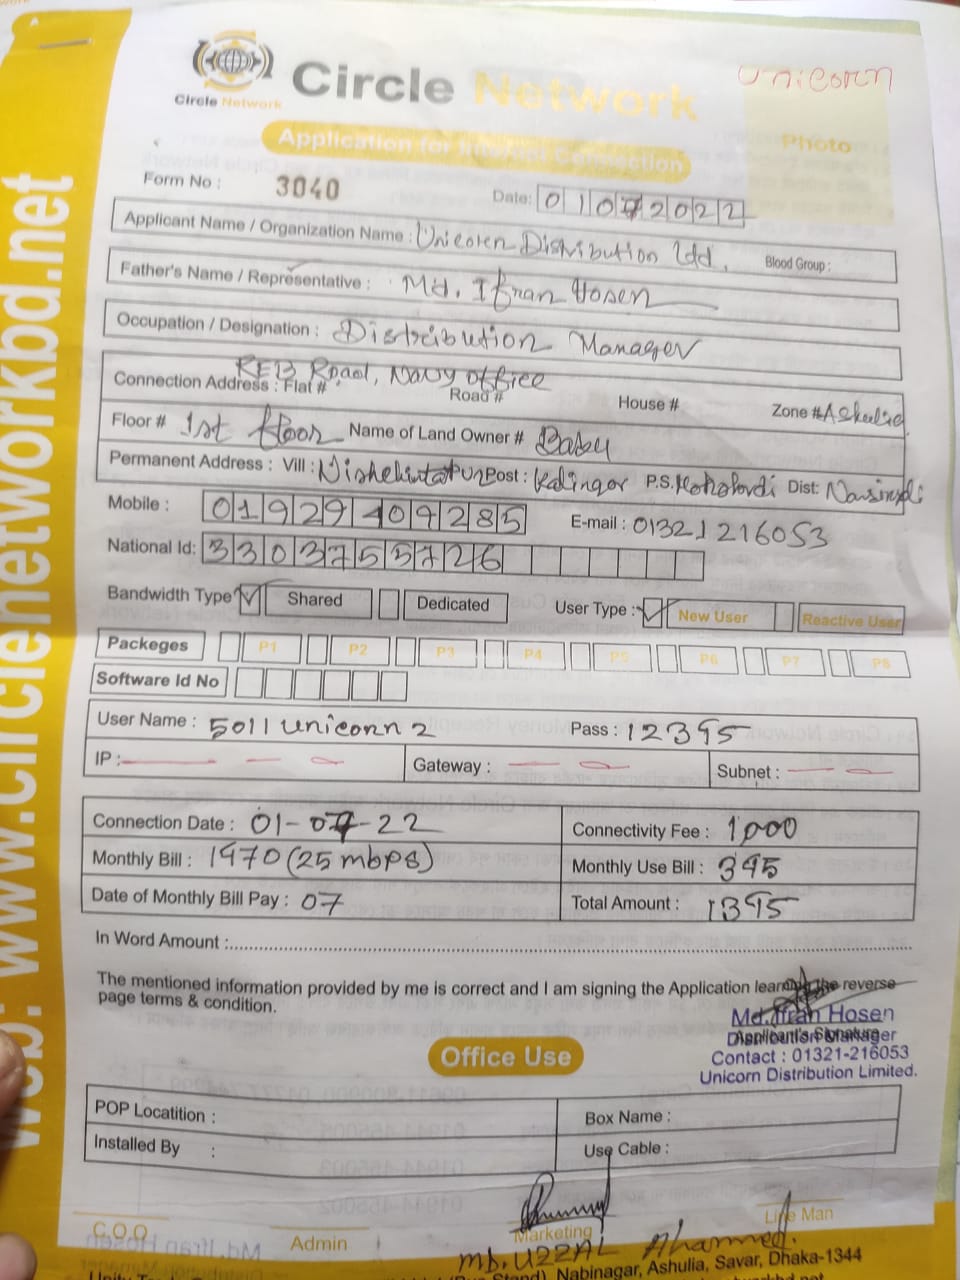 Unicorn
Circle Network
Circle Network
Photo
Application for Internet Connection
Form No : 3040 Date: 01072022
Applicant Name / Organization Name : Unicorn Distribution Ltd. Blood Group :
Father's Name / Representative : Md. Ifran Hosen
Occupation / Designation : Distribution Manager
REB Road, Navy office
Connection Address : Flat # Road # House # Zone # Ashulia
Floor # 1st floor Name of Land Owner # Babu
Permanent Address : Vill : Post : Kalingor P.S. Dist:
Mobile : 01929409285 E-mail : 01321216053
National Id: 3303755726
Bandwidth Type Shared Dedicated User Type : New User Reactive User
Packeges P1 P2 P3 P4 P5 P6 P7 P8
Software Id No
User Name : 5011unicorn2 Pass : 12395
IP : Gateway : Subnet :
Connection Date : 01-07-22 Connectivity Fee : 1000
Monthly Bill : 1970 (25 mbps) Monthly Use Bill : 395
Date of Monthly Bill Pay : 07 Total Amount : 1395
In Word Amount :
The mentioned information provided by me is correct and I am signing the Application learning the reverse
page terms & condition.
Md. Ifran Hosen
Applicant's Signature
Distribution Manager
Contact : 01321-216053
Unicorn Distribution Limited.
Office Use
POP Locatition : Box Name :
Installed By : Use Cable :
C.O.O Admin Marketing Line Man
Md. UZZAL Ahammed.
Nabinagar, Ashulia, Savar, Dhaka-1344
web: www.circlenetworkbd.net